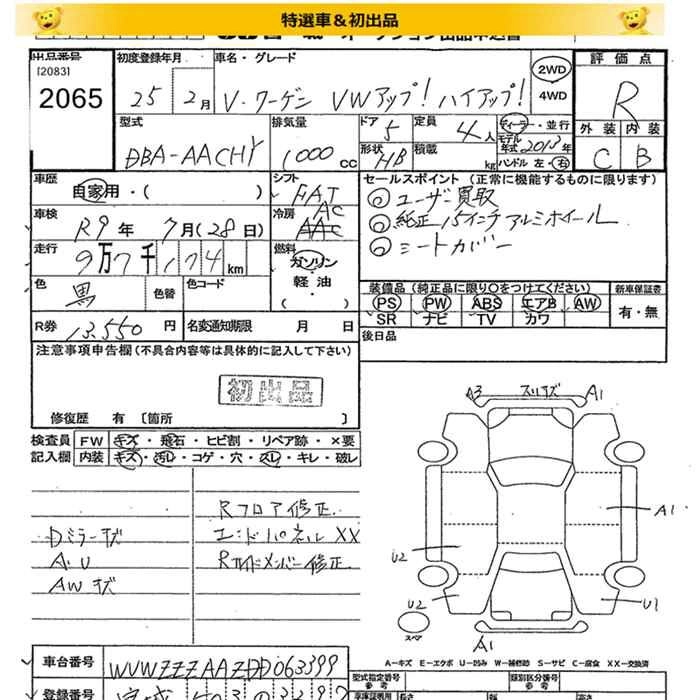 特選車＆初出品
出品番号 初度登録年月 車名・グレード 評価点
[2083]
2065 25 2月 V・ワーゲン VWアップ! ハイアップ! 2WD 4WD R
型式 排気量 ドア 定員 ディーラー・並行 外装 内装
DBA-AACHY 1000cc 5 4人 モデル年式 2013年 C B
形状 HB 積載 kg ハンドル 左・右
車歴 自家用・( ) シフト FAT セールスポイント（正常に機能するものに限ります）
冷房 AC AAC ◎ユーザー買取
車検 R9年 7月(28日) ◎純正15インチアルミホイール
走行 9万7千174km 燃料 ガソリン・軽油・( ) ◎シートカバー
色 黒 色替 色コード 装備品（純正品に限り○をつけてください） 新車保証書
PS PW ABS エアB AW 有・無
R券 13,550円 名変通知期限 月 日 SR ナビ TV カワ
注意事項申告欄(不具合内容等は具体的に記入して下さい) 後日品
初出品
修復歴 有 〔箇所 〕
検査員 FW キズ・飛石・ヒビ割・リペア跡・×要
記入欄 内装 キズ・汚レ・コゲ・穴・スレ・キレ・破レ
Rフロア修正
Dミラーキズ エンドパネルXX
A.U Rサイドメンバー修正
AWキズ
A3 スリキズ A1
A1
U2
U2 U1
スペア
A1
A-キズ E-エクボ U-凹み W-補修跡 S-サビ C-腐食 XX-交換済
車台番号 WVWZZZAAZDD063399 型式指定番号 参考 類別区分番号 参考
登録番号 長さ 幅 高さ